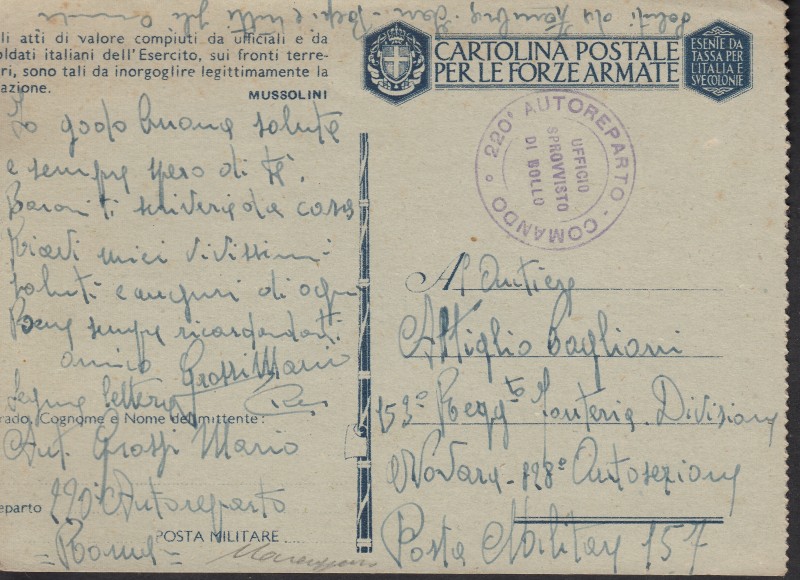 li atti di valore compiuti da ufficiali e da
oldati italiani dell'Esercito, sui fronti terre-
ri, sono tali da inorgoglire legittimamente la
azione.
MUSSOLINI
Io godo buona salute
e sempre spero di te.
Baroni ti scriverà da casa
Ricevi miei vivissimi
saluti e auguri di ogni
Bene sempre ricordandoti
amico Grossi Mario
Segue lettera
rado, Cognome e Nome del mittente:
Aut. Grossi Mario
eparto 220° Autoreparto
POSTA MILITARE .....
= Roma =
CARTOLINA POSTALE
PER LE FORZE ARMATE
ESENTE DA
TASSA PER
L'ITALIA E
SVE COLONIE
220° AUTOREPARTO - COMANDO
UFFICIO
SPROVVISTO
DI BOLLO
Al Autiere
Attiglio Baglioni
153° Regg.to Fanteria Divisione
Novara - 128° Autosezione
Posta Militare 157